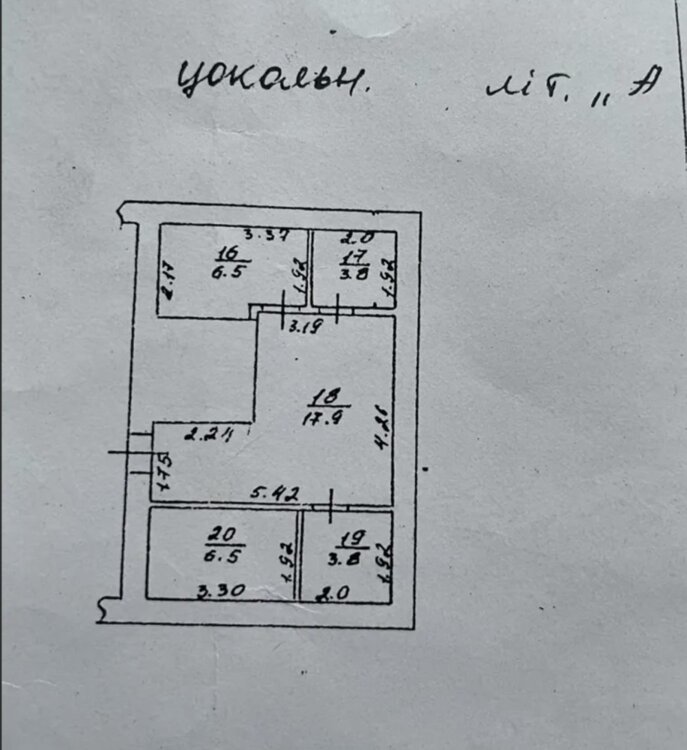 цокольн. літ. „А
3.37 2.0
16 17
6.5 3.8
2.17 1.92 1.92
3.19
18
17.9
4.26
2.24
1.75
5.42
20 19
6.5 3.8
1.92 1.92
3.30 2.0